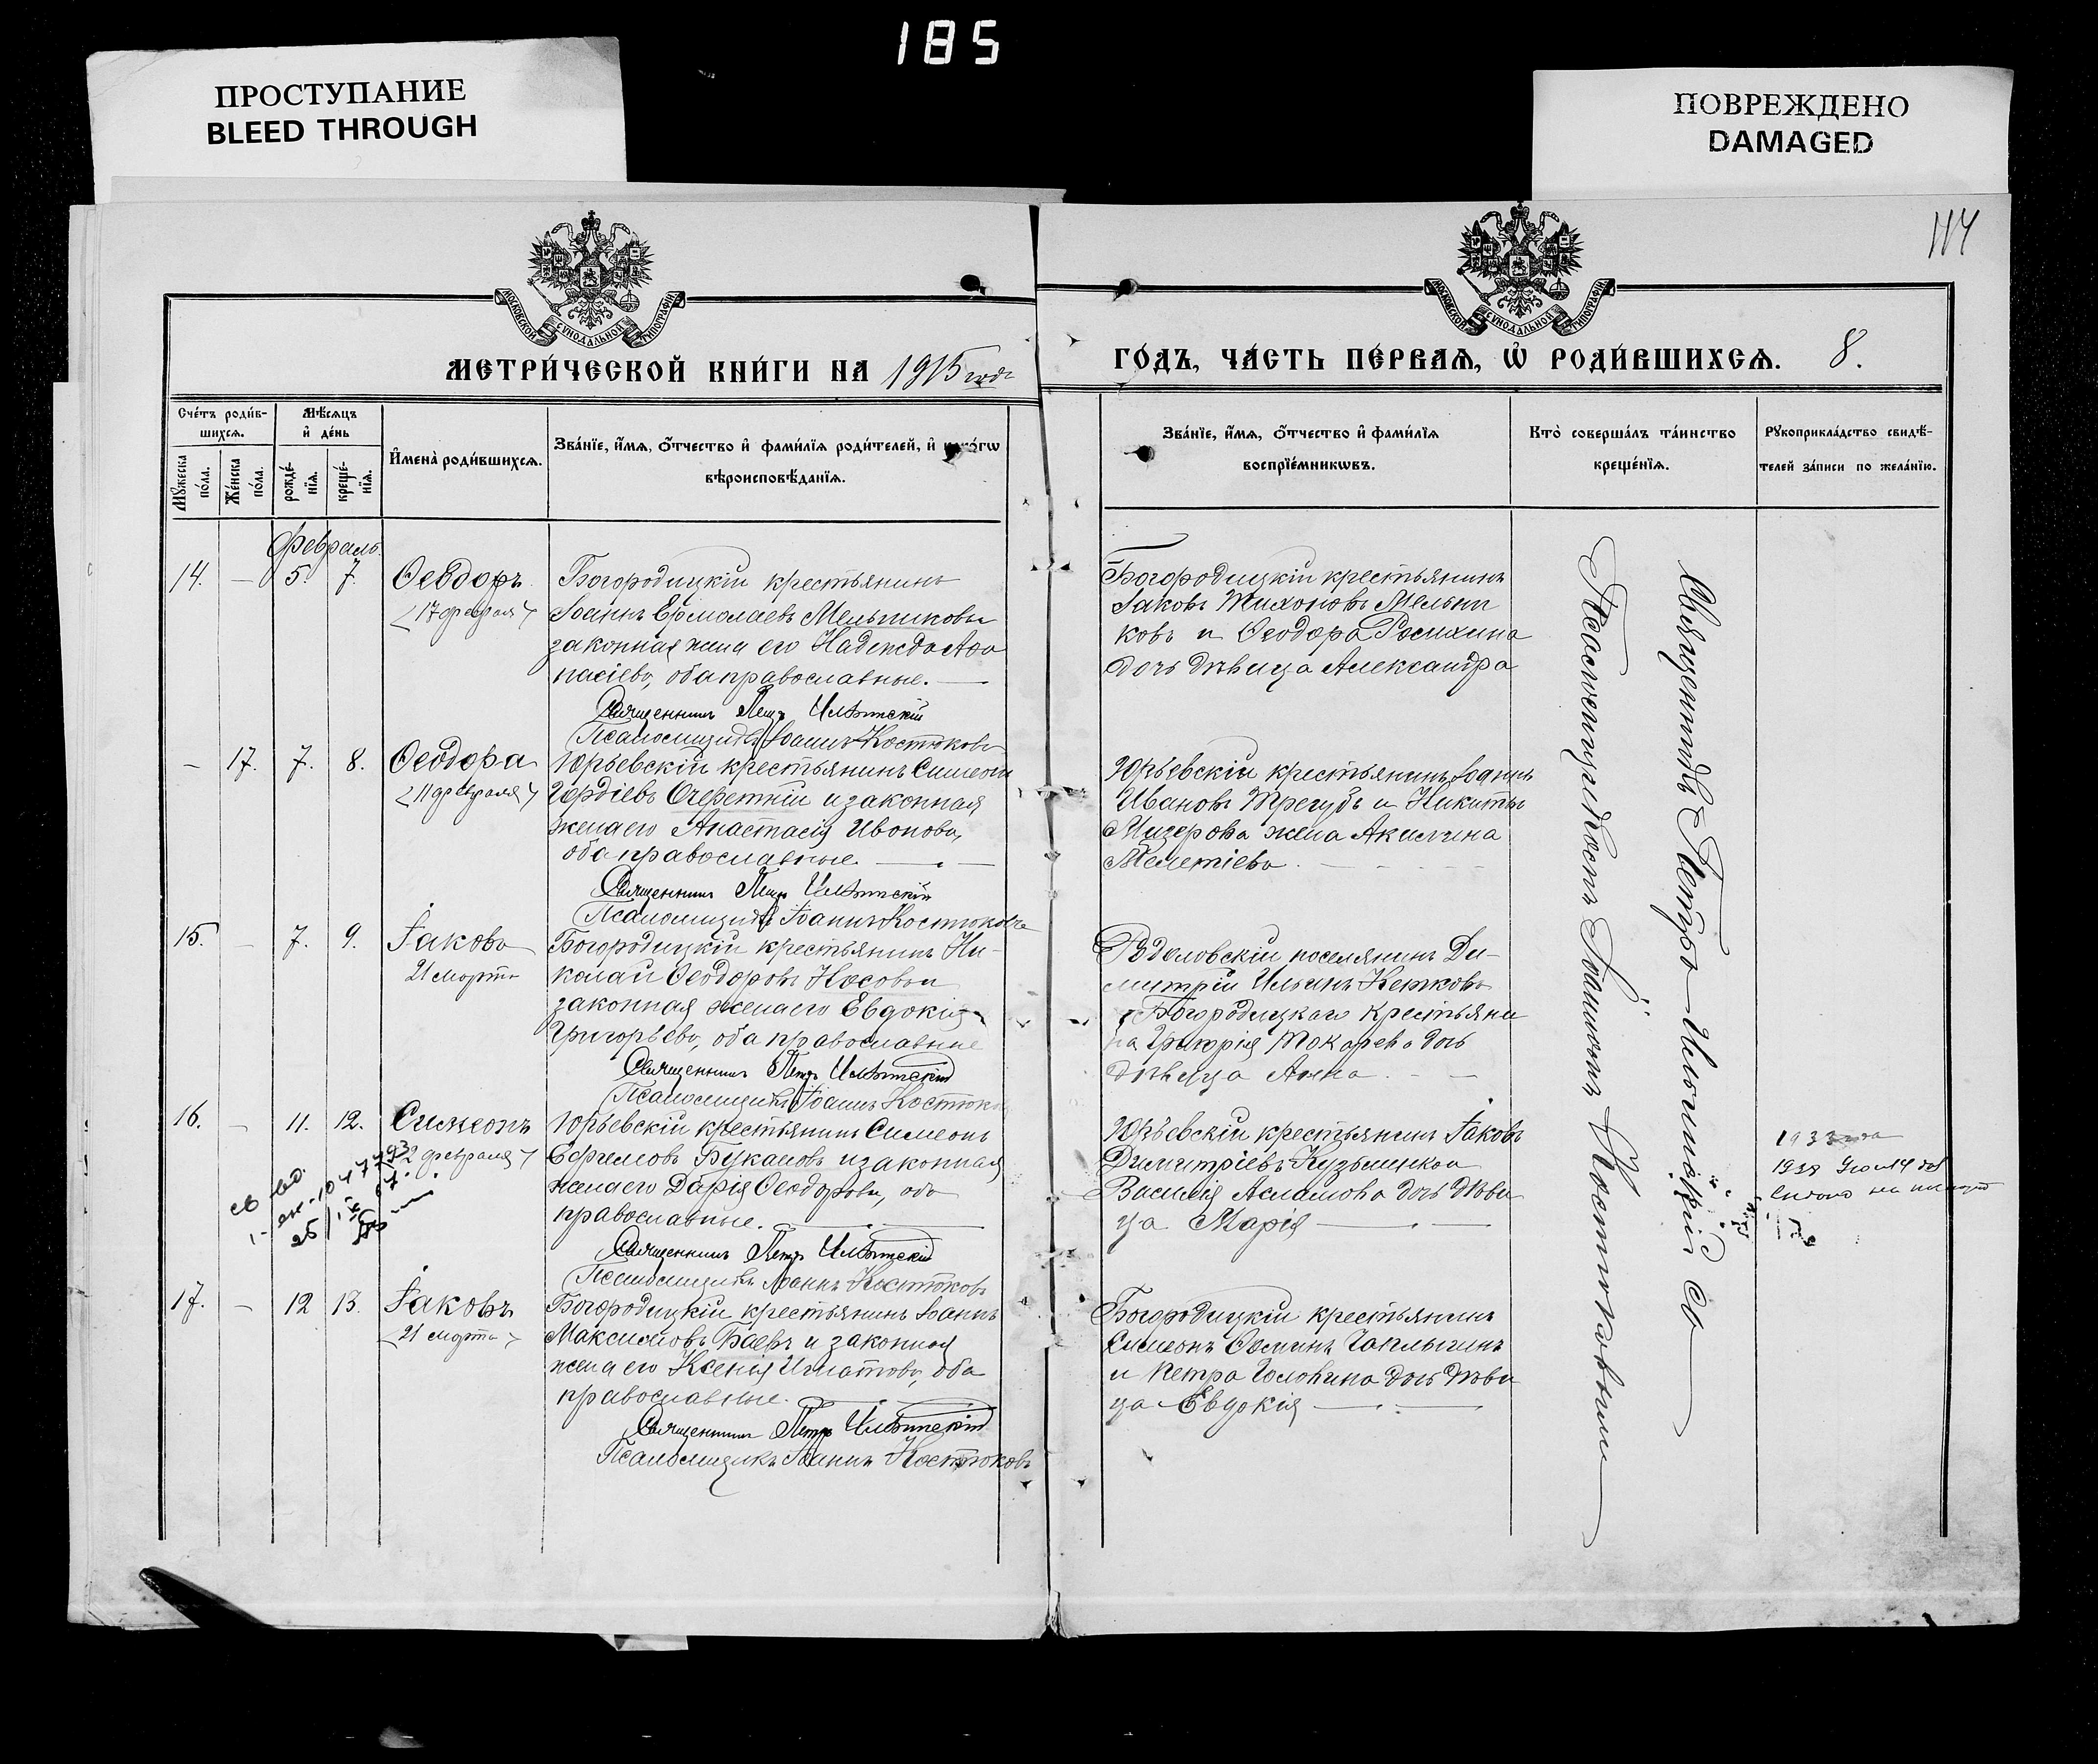 185
ПРОСТУПАНИЕ
BLEED THROUGH
ПОВРЕЖДЕНО
DAMAGED
114
МОСКОВСКОЙ СѴНОДАЛЬНОЙ ТИПОГРАФІИ
МОСКОВСКОЙ СѴНОДАЛЬНОЙ ТИПОГРАФІИ
МЕТРИ́ЧЕСКОЙ КНИ́ГИ НА 1915 года
ГО́ДЪ, ЧА́СТЬ ПЕ́РВАЯ, Ѡ҆ РОДИ́ВШИХСЯ. 8.
Сче́тъ роди́в-
шихся.
Мѣ́сяцъ
и҆ де́нь
Мꙋ́жеска по́ла.
Же́нска по́ла.
рожде́-
нїѧ.
креще́-
нїѧ.
И҆мена̀ роди́вшихся.
Зва́нїе, и҆́мя, ѻ҆́тчество и҆ фами́лїя роди́телей, и҆
вѣроисповѣ́данїя.
Зва́нїе, и҆́мя, ѻ҆́тчество и҆ фами́лїя
воспрїе́мникѡвъ.
Кто̀ соверша́лъ та́инство
креще́нїя.
Рꙋкоприкла́дство свидѣ́-
телей за́писи по жела́нїю.
Февраль.
14. — 5. 7. Ѳеодоръ
17 февраля
Богородицкій крестьянинъ
Іоаннъ Ермолаевъ Мельниковъ и
законная жена его Надежда Аѳа
насіева, оба православные. —
Священникъ Петръ Ильинскій
Псаломщикъ Іоаннъ Костюковъ
Богородицкій крестьянинъ
Іаковъ Тихоновъ Мельни
ковъ и Ѳеодора Росихина
дочь дѣвица Александра
— 17. 7. 8. Ѳеодора
11 февраля
Юрьевскій крестьянинъ Симеонъ
Гордіевъ Очеретній и законная
жена его Анастасія Иванова,
оба православные. —
Священникъ Петръ Ильинскій
Псаломщикъ Іоаннъ Костюковъ
Юрьевскій крестьянинъ Іоаннъ
Ивановъ Трегубъ и Никиты
Мизерова жена Акилина
Мелетіева.
15. — 7. 9. Іаковъ
21 марта
Богородицкій крестьянинъ Ни-
колай Ѳеодоровъ Носовъ и
законная жена его Евдокія
Григорьева, оба православные
Священникъ Петръ Ильинскій
Псаломщикъ Іоаннъ Костюковъ
поселянинъ Ди-
митрій Ильинъ
и Богородицкаго крестьяни
на Григорія Токарева дочь
дѣвица Анна.
16. — 11. 12. Симеонъ
февраля
Юрьевскій крестьянинъ Симеонъ
Ефремовъ Букаловъ и законная
жена его Дарія Ѳеодорова, оба
православные. —
Священникъ Петръ Ильинскій
Псаломщикъ Іоаннъ Костюковъ
Юрьевскій крестьянинъ Іаковъ
Димитріевъ и
Василія Асламова дочь дѣви
ца Марія —
17. — 12 13. Іаковъ
21 марта
Богородицкій крестьянинъ Іоаннъ
Максимовъ Баевъ и законная
жена его Ксенія Игнатова, оба
православные. —
Священникъ Петръ Ильинскій
Псаломщикъ Іоаннъ Костюковъ
Богородицкій крестьянинъ
Симеонъ Ѳоминъ Чаплыгинъ
и Петра Головина дочь дѣви
ца Евдокія —
Священникъ Петръ Ильинскій съ
Псаломщикомъ Іоанномъ Костюковымъ